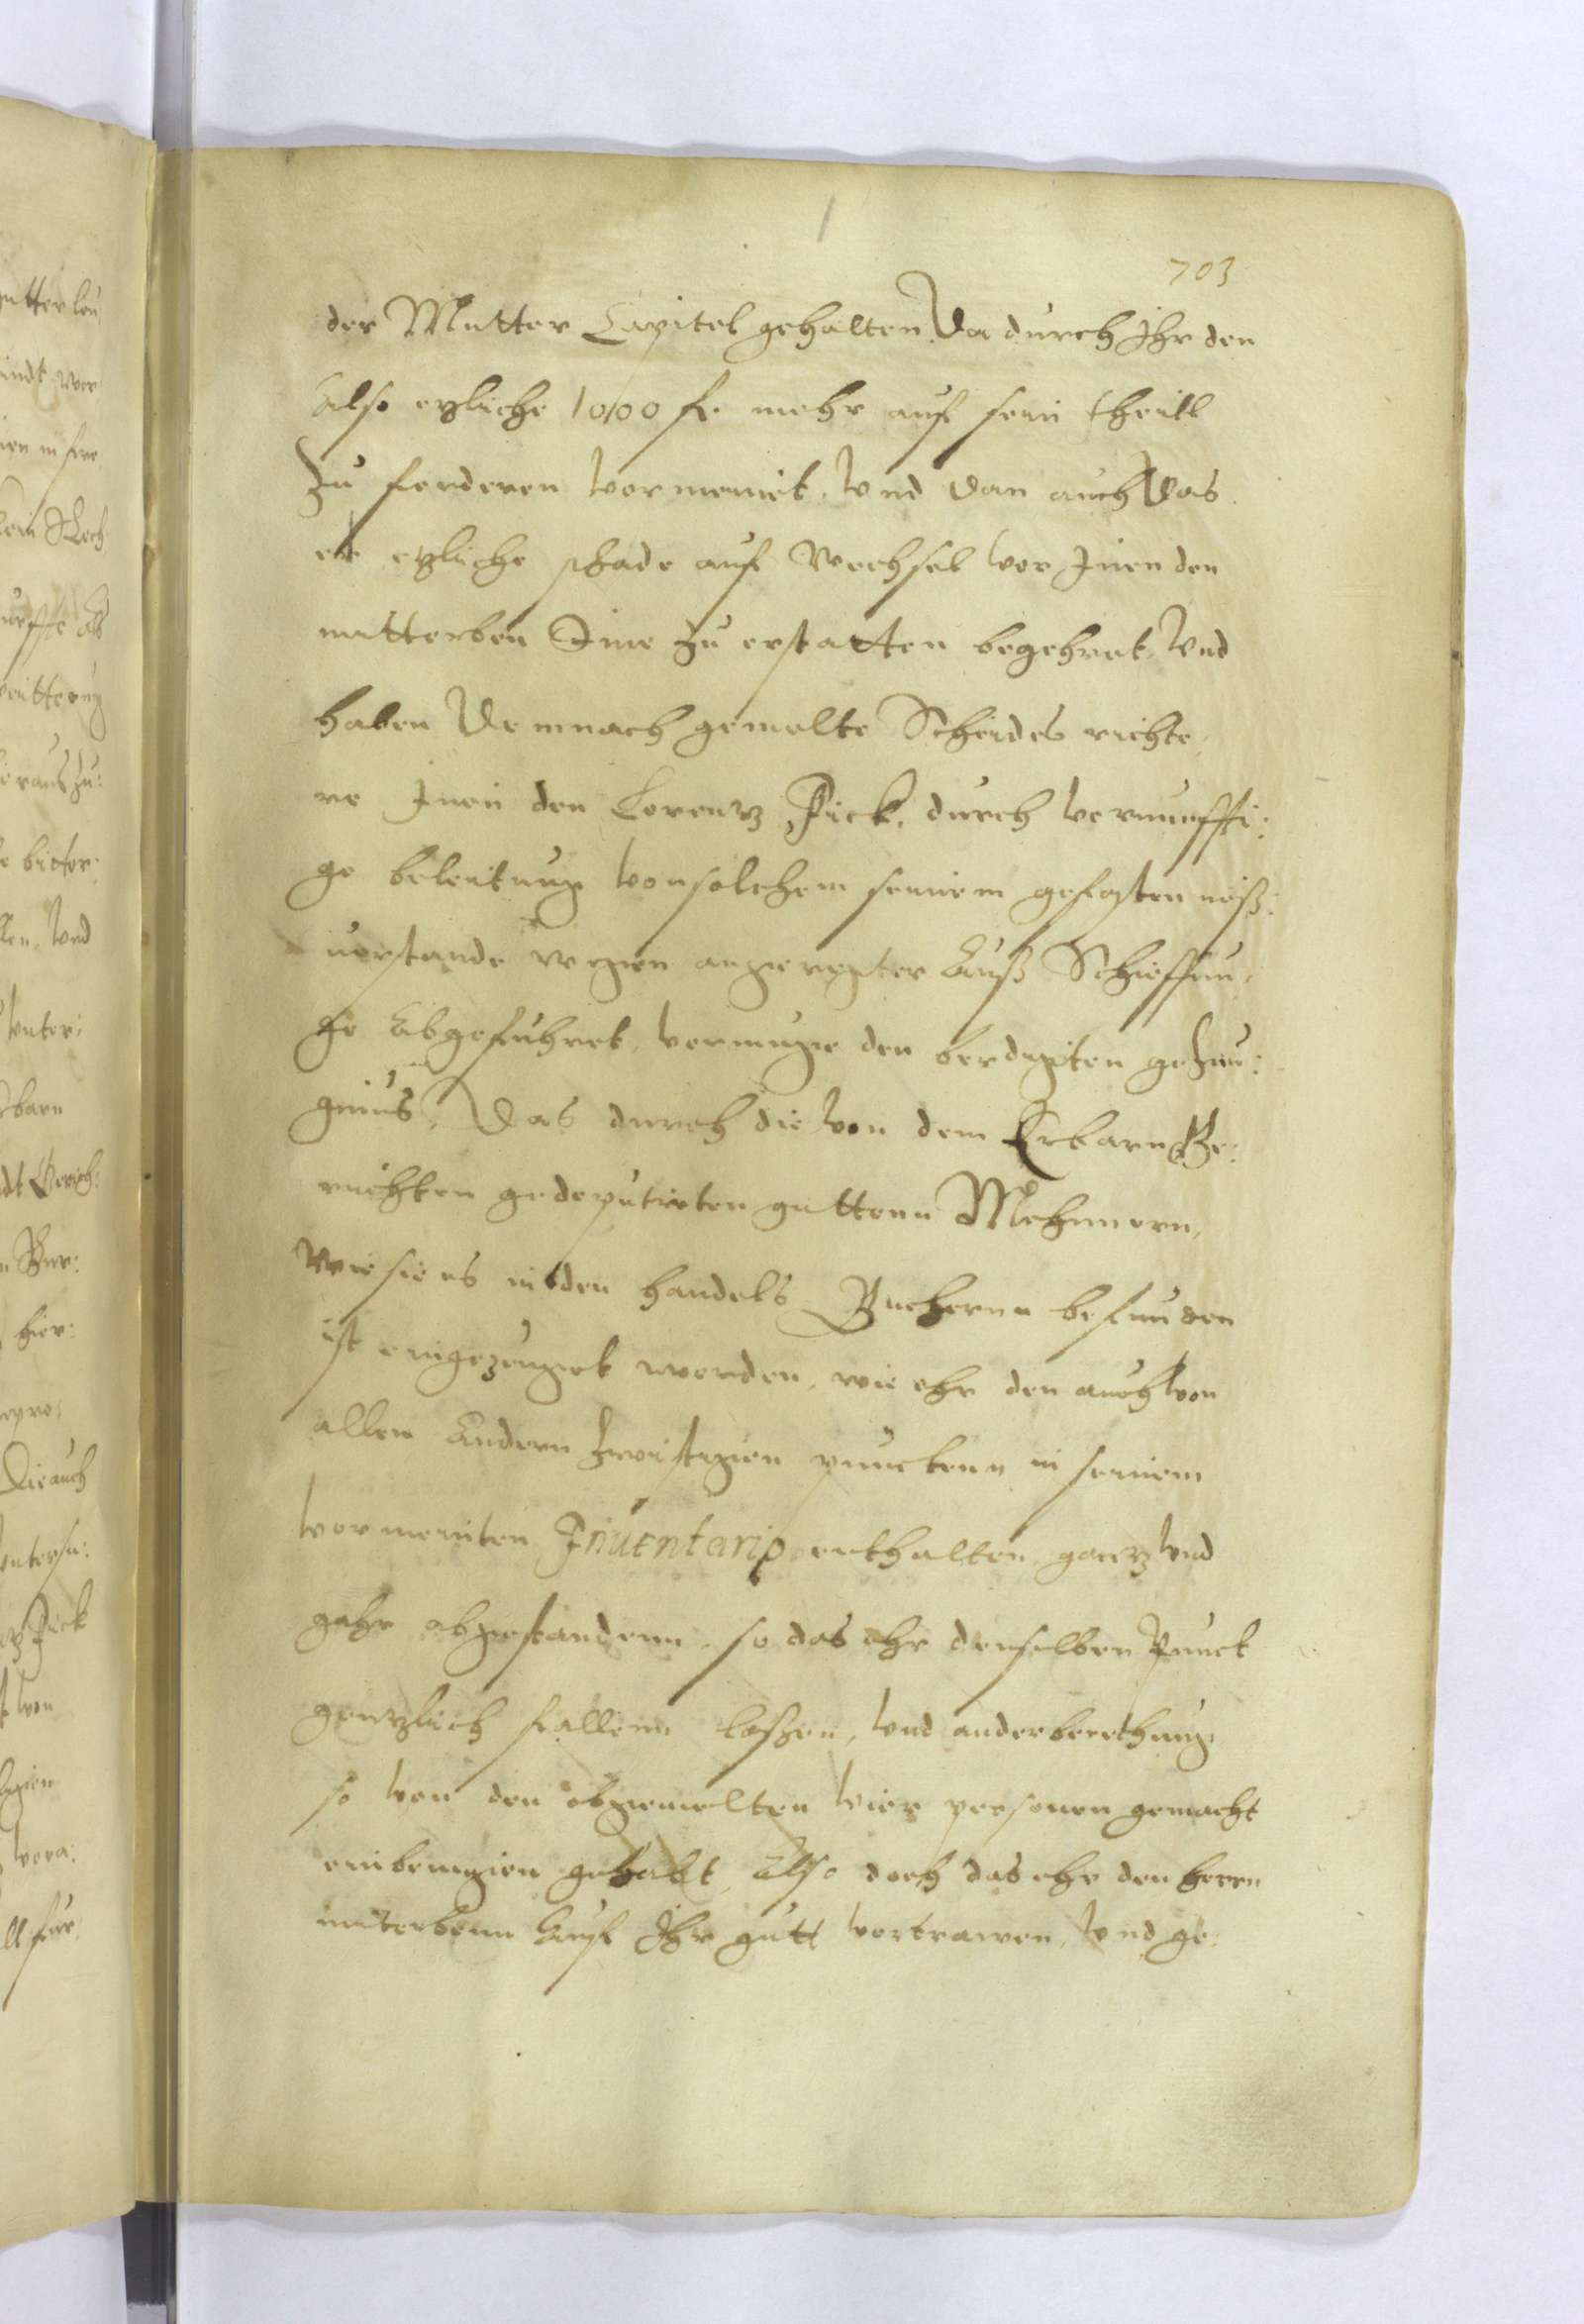 703
der Mutter Capitel gehalten, Da durch Ihr den
Also ezliche 1000 fl. mehr auf sein theill
Zu forderen vermeint, Vnd dan auch Das
er ezliche schade auf Wechsel vor Inen den
mitterben Ime zu erstatten begehret, Vnd
haben Demnach gemelte Scheides richte,
re Inen den Lorentz Fick, durch vernunffti:
ge beleitung von solchem seinem gefasten miß:
uerstande wegen angeregter Auß Schieffun,
ge Abgefuhret, vermuge den beeden gezeu:
gnius, Das durch die von dem Erbarn Ge:
richten gedeputirten guttenn Mehnnern,
Wie sie es in den handels Buchernn befunden
ist eingezeuget worden, wie ehr den auch von
allen Andern Zwistigen punctenn in seinem
vermeinten Inuentario enthalten, gantz vnd
gahr abgestandenn, so das ehr denselben Punct
gentzlich fallenn laßen, vnd ander
so von den obgemelten vier personen gemacht
ein benugen gehabt, Also doch das ehr den herrn
miterbenn Auf Ihr gutt vertrawen, Vnd ge: